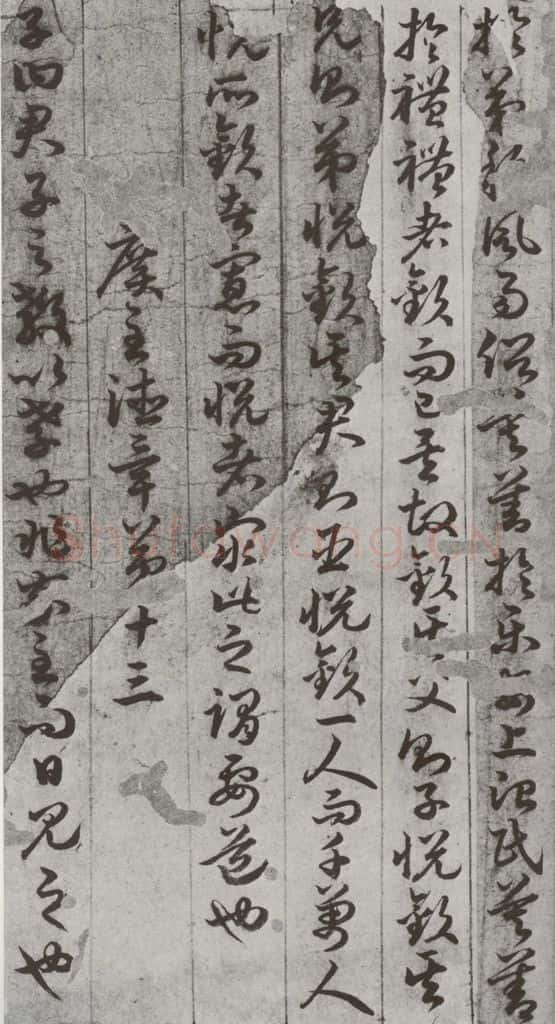 於弟移風易俗莫善於樂安上治民莫善
於禮禮者敬而已矣故敬其父則子悅敬其
兄則弟悅敬其君則臣悅敬一人而千萬人
悅所敬者寡而悅者衆此之謂要道也
廣至德章第十三
子曰君子之教以孝也非家至而日見之也
Shufawang.CN